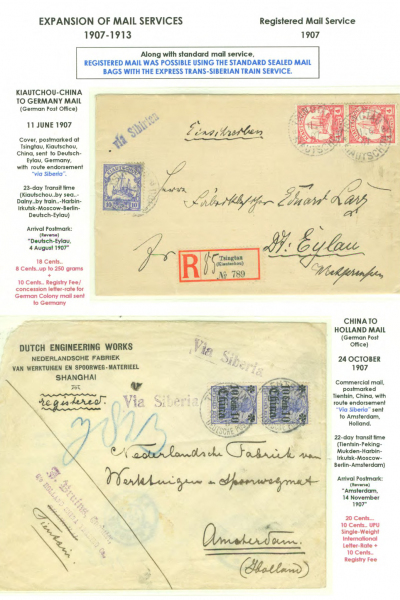 EXPANSION OF MAIL SERVICES
1907-1913
Registered Mail Service
1907
Along with standard mail service,
REGISTERED MAIL WAS POSSIBLE USING THE STANDARD SEALED MAIL
BAGS WITH THE EXPRESS TRANS-SIBERIAN TRAIN SERVICE.
KIAUTCHOU-CHINA
TO GERMANY MAIL
(German Post Office)
11 JUNE 1907
Cover, postmarked at
Tsingtau, Kiautchou,
China, sent to Deutsch-
Eylau, Germany,
with route endorsement
"via Siberia".
23-day Transit time
(Kiautchou..by sea,.-
Dalny..by train,.-Harbin-
Irkutsk-Moscow-Berlin-
Deutsch-Eylau)
Arrival Postmark:
(Reverse)
"Deutsch-Eylau,
4 August 1907"
18 Cents..
8 Cents..up to 250 grams
+
10 Cents.. Registry Fee/
concession letter-rate for
German Colony mail sent
to Germany
via Siberien
Einschreiben
Herrn
Eduard
Dt. Eylau
Westpreussen
R
Tsingtau
(Kiautschou)
No 789
CHINA TO
HOLLAND MAIL
(German Post
Office)
24 OCTOBER
1907
Commercial mail,
postmarked
Tientsin, China, with
route endorsement
"Via Siberia" sent
to Amsterdam,
Holland.
22-day transit time
(Tientsin-Peking-
Mukden-Harbin-
Irkutsk-Moscow-
Berlin-Amsterdam)
Arrival Postmark:
(Reverse)
"Amsterdam,
14 November
1907"
20 Cents...
10 Cents.. UPU
Single-Weight
International
Letter-Rate +
10 Cents..
Registry Fee
DUTCH ENGINEERING WORKS
NEDERLANDSCHE FABRIEK
VAN WERKTUIGEN EN SPOORWEG-MATERIEEL
SHANGHAI
registered
Via Siberia
Via Siberia
Nederlandsche Fabriek van
Werktuigen & Spoorwegmat
Amsterdam.
(Holland)
Tientsin